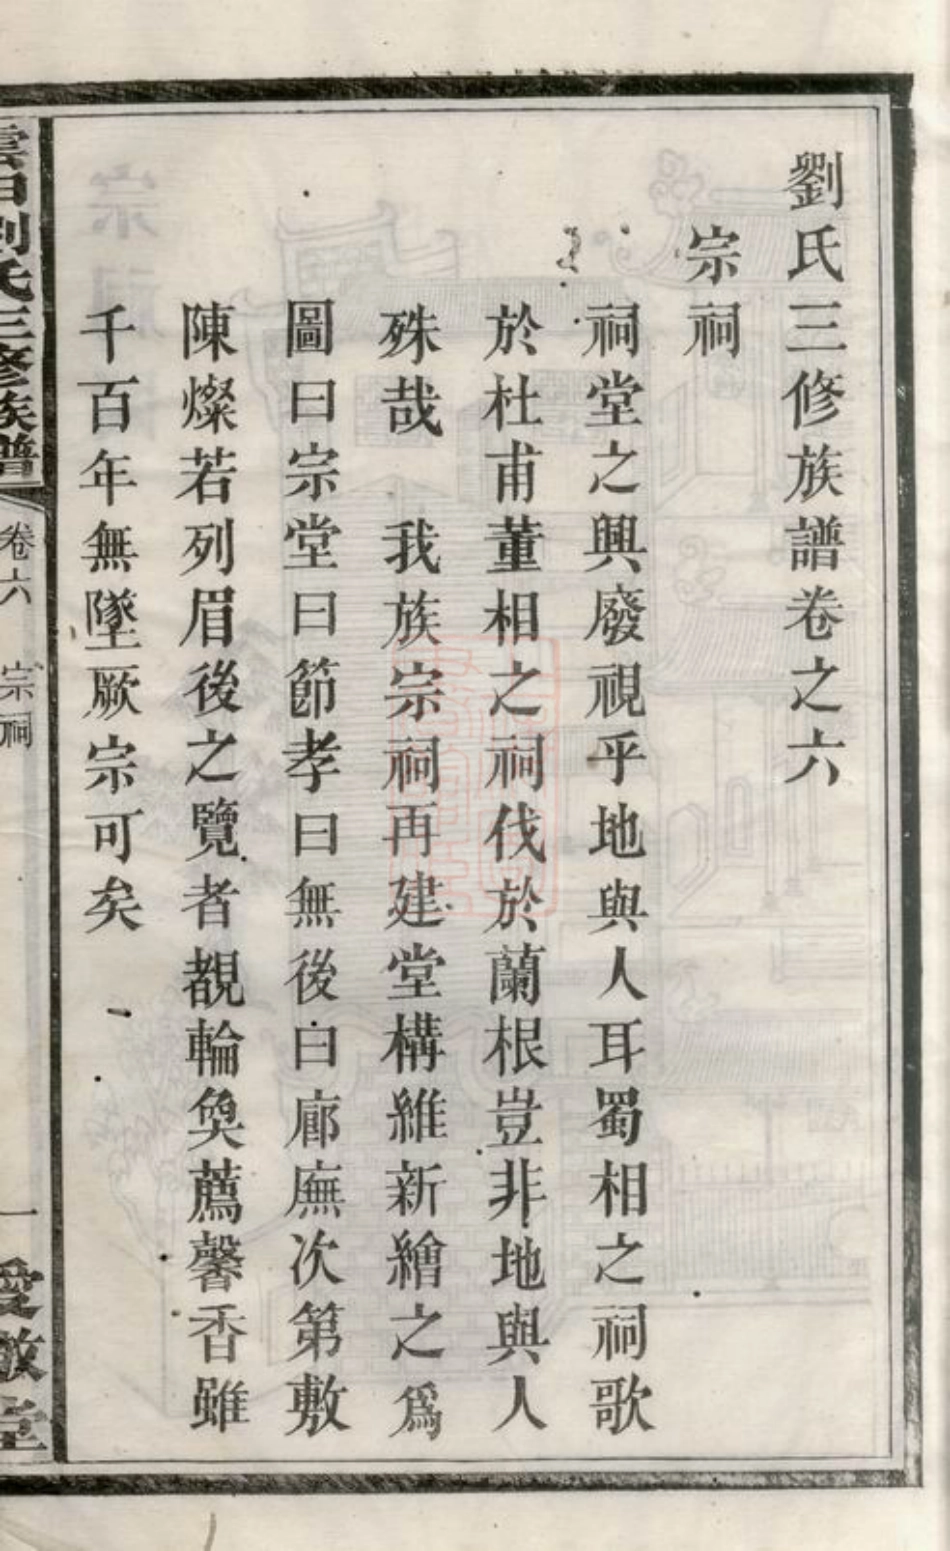 劉氏三修族譜卷之六
宗祠
祠堂之興廢視乎地與人耳蜀相之祠歌
於杜甫董相之祠伐於蘭根豈非地與人
殊哉　我族宗祠再建堂構維新繪之爲
圖曰宗堂曰節孝曰無後曰廊廡次第敷
陳燦若列眉後之覽者覩輪奐薦馨香雖
千百年無墜厥宗可矣
劉氏三修族譜
卷六　宗祠
一
愛敬堂